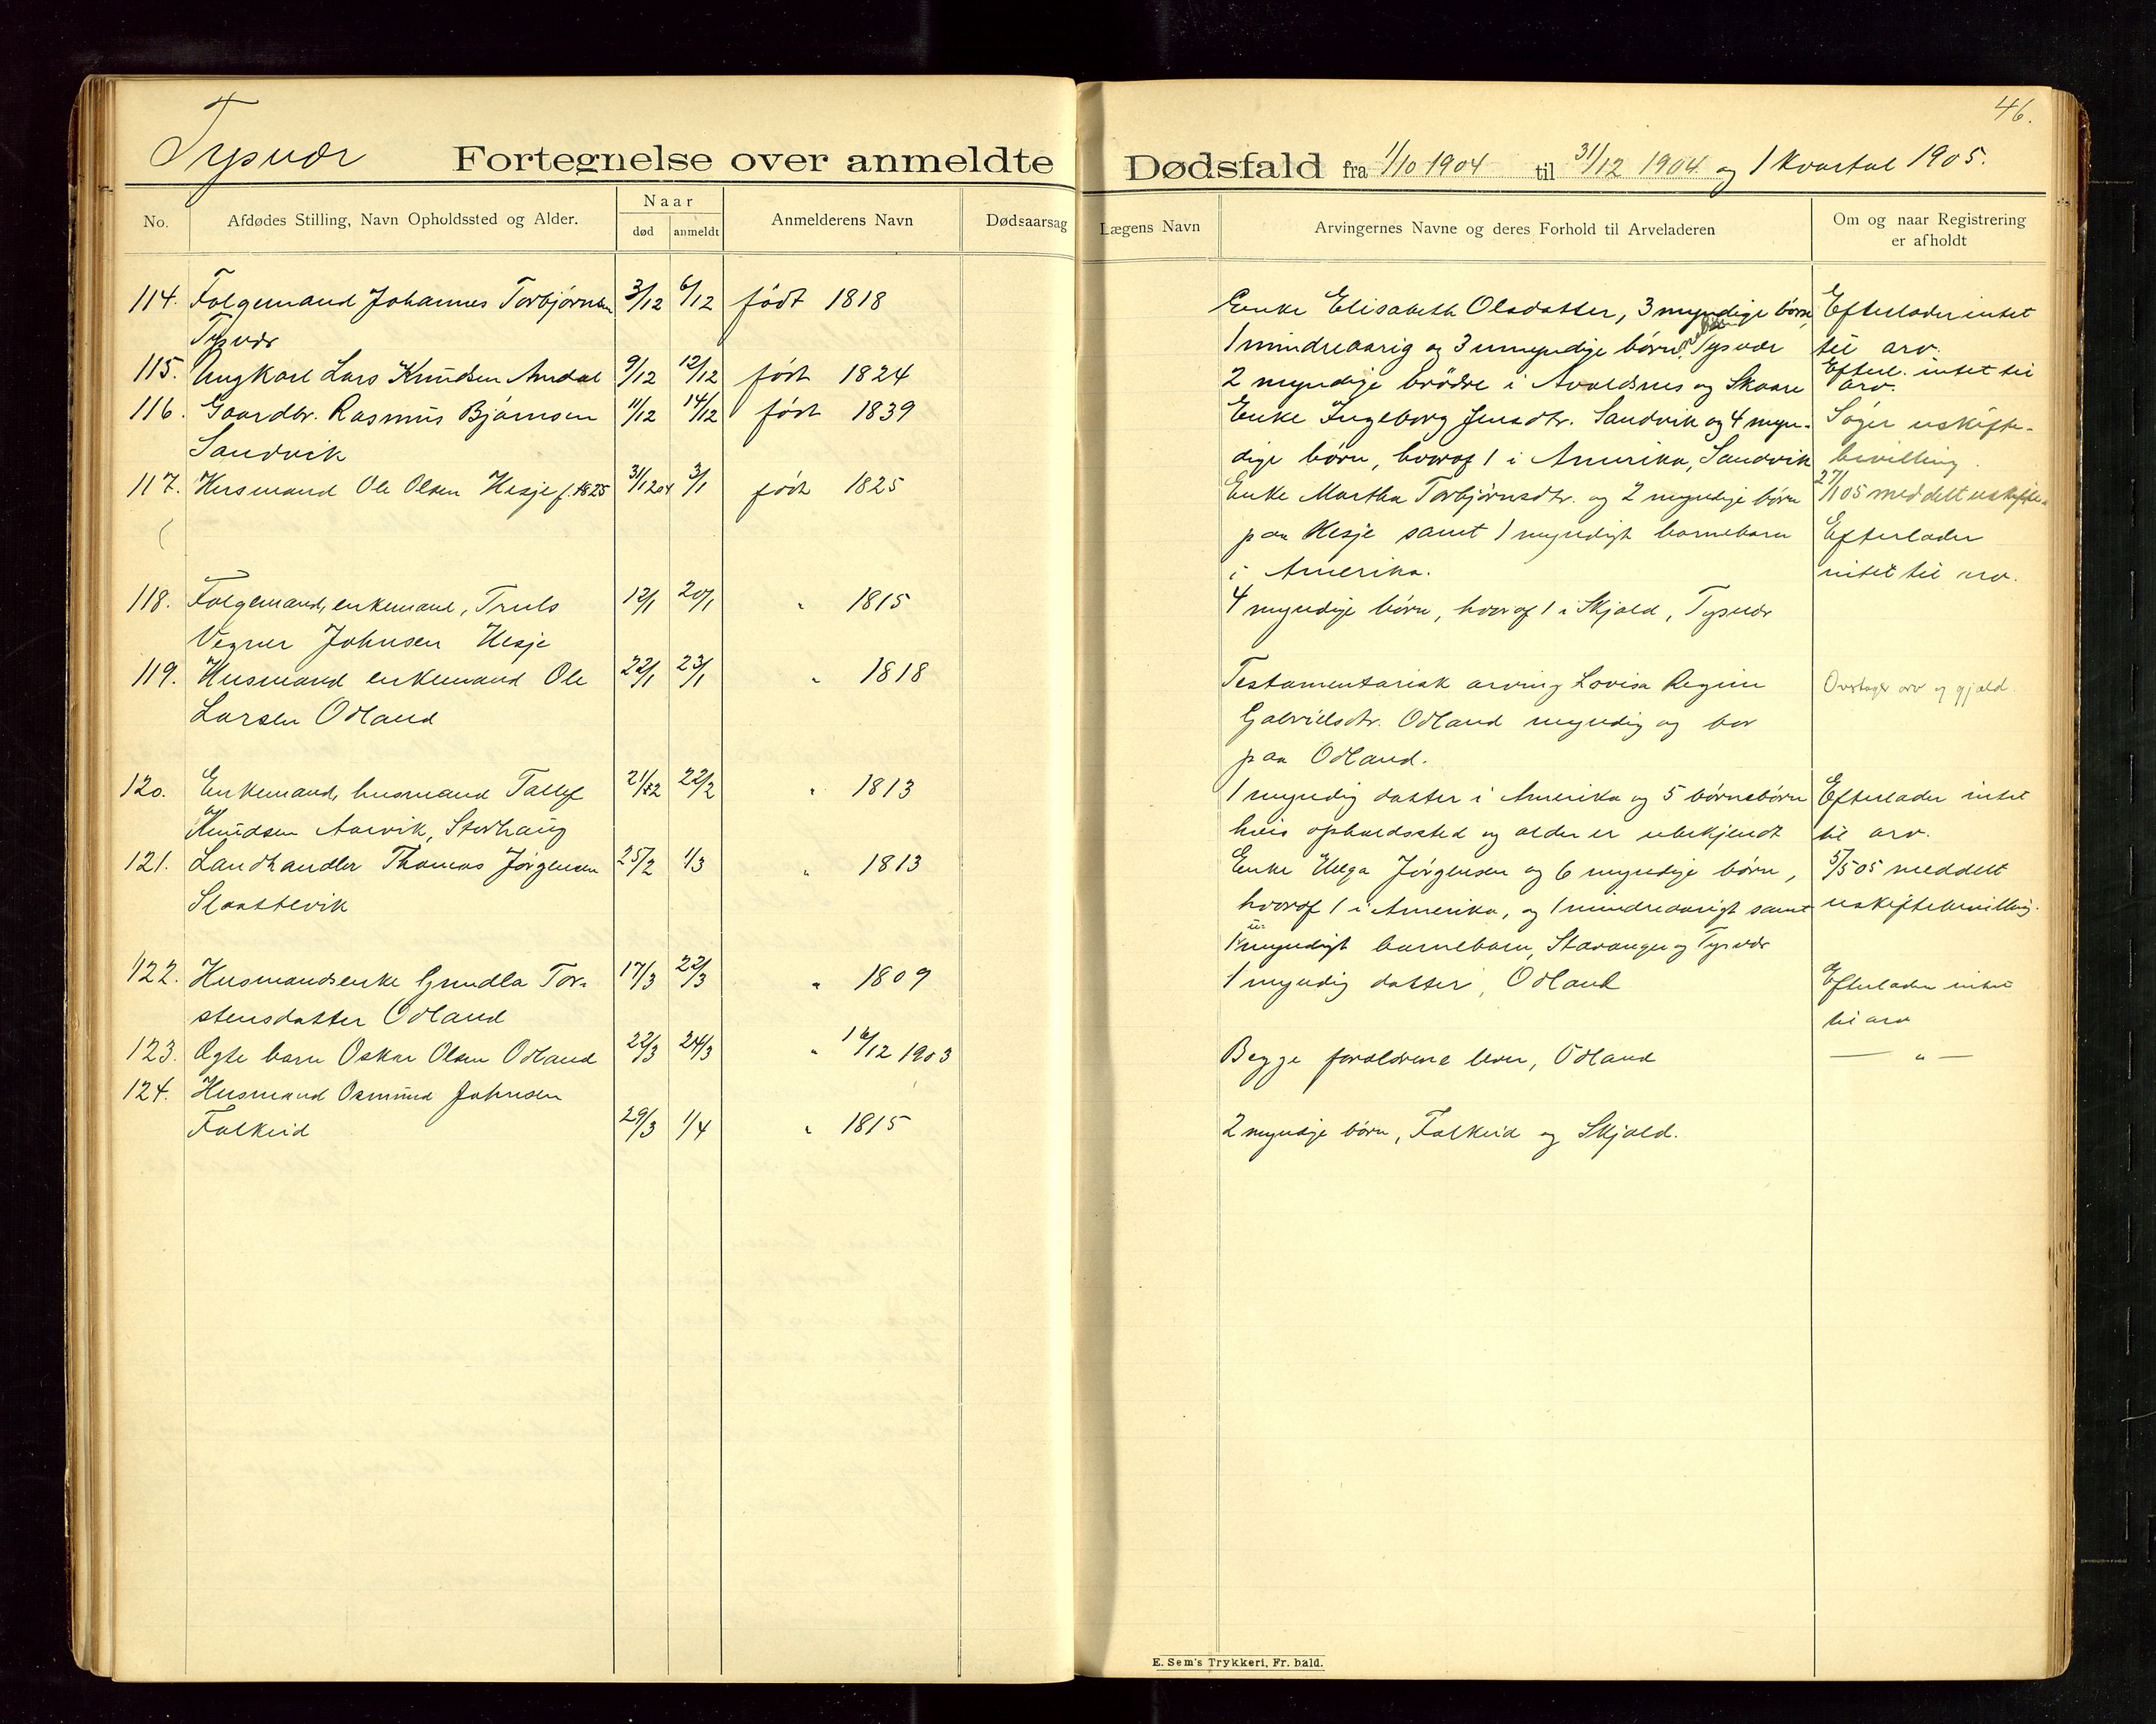 46.
Tysvær
Fortegnelse over anmeldte Dødsfald fra 1/10 1904 til 31/12 1904 og 1 kvartal 1905.
No. Afdødes Stilling, Navn Opholdssted og Alder. Naar død anmeldt Anmelderens Navn Dødsaarsag Lægens Navn Arvingernes Navne og deres Forhold til Arveladeren Om og naar Registrering er afholdt
114. Folgemand Johannes Torbjørnsen 3/12 6/12 født 1818 Enke Elisabeth Olsdatter, 3 myndige børn, Efterlader intet
Tysvær 1 mindreaarig og 3 umyndige børnebørn, Tysvær til arv.
115. Ungkarl Lars Knudsen Amdal 9/12 12/12 født 1824 2 myndige brødre i Avaldsnes og Skaare Efterl. intet til arv.
116. Gaardbr. Rasmus Bjørnsen 11/12 14/12 født 1839 Enke Ingeborg Jensdtr. Sandvik og 4 myn- Søger uskifte-
Sandvik dige børn, hvoraf 1 i Amerika, Sandvik bevilling.
117. Husmand Ole Olsen Hesje f. 1825 31/12 04 3/1 født 1825 Enke Martha Torbjørnsdtr. og 2 myndige børn 27/1 05 meddelt uskifte
paa Hesje samt 1 myndigt barnebarn Efterlader
i Amerika. intet til arv.
118. Folgemand, enkemand, Truls 12/1 20/1 " 1815 4 myndige børn, hvoraf 1 i Skjold, Tysvær
Vegner Johnsen Hesje
119. Husmand enkemand Ole 22/1 23/1 " 1818 Testamentarisk arving Lovisa Regine Overtager arv og gjæld.
Larsen Odland Gabrielsdtr. Odland myndig og bor
paa Odland.
120. Enkemand, husmand Tallef 21/2 22/2 " 1813 1 myndig datter i Amerika og 5 børnebørn Efterlader intet
Knudsen Aarvik, Storhaug hvis opholdssted og alder er ubekjendt til arv.
121. Landhandler Thomas Jørgensen 25/2 1/3 " 1813 Enke Helga Jørgensen og 6 myndige børn, 5/5 05 meddelt
Slaattevik hvoraf 1 i Amerika, og 1 mindreaarigt samt uskiftebevilling.
1 umyndigt barnebarn, Stavanger og Tysvær
122. Husmandsenke Gundla Tor- 17/3 22/3 " 1809 1 myndig datter, Odland Efterlader intet
stensdatter Odland til arv
123. Ægte barn Oskar Olsen Odland 22/3 24/3 " 16/12 1903 Begge forældrene lever, Odland — " —
124. Husmand Osmund Johnsen
Falkeid 29/3 1/4 " 1815 2 myndige børn, Falkeid og Skjold.
E. Sem's Trykkeri, Fr. hald.